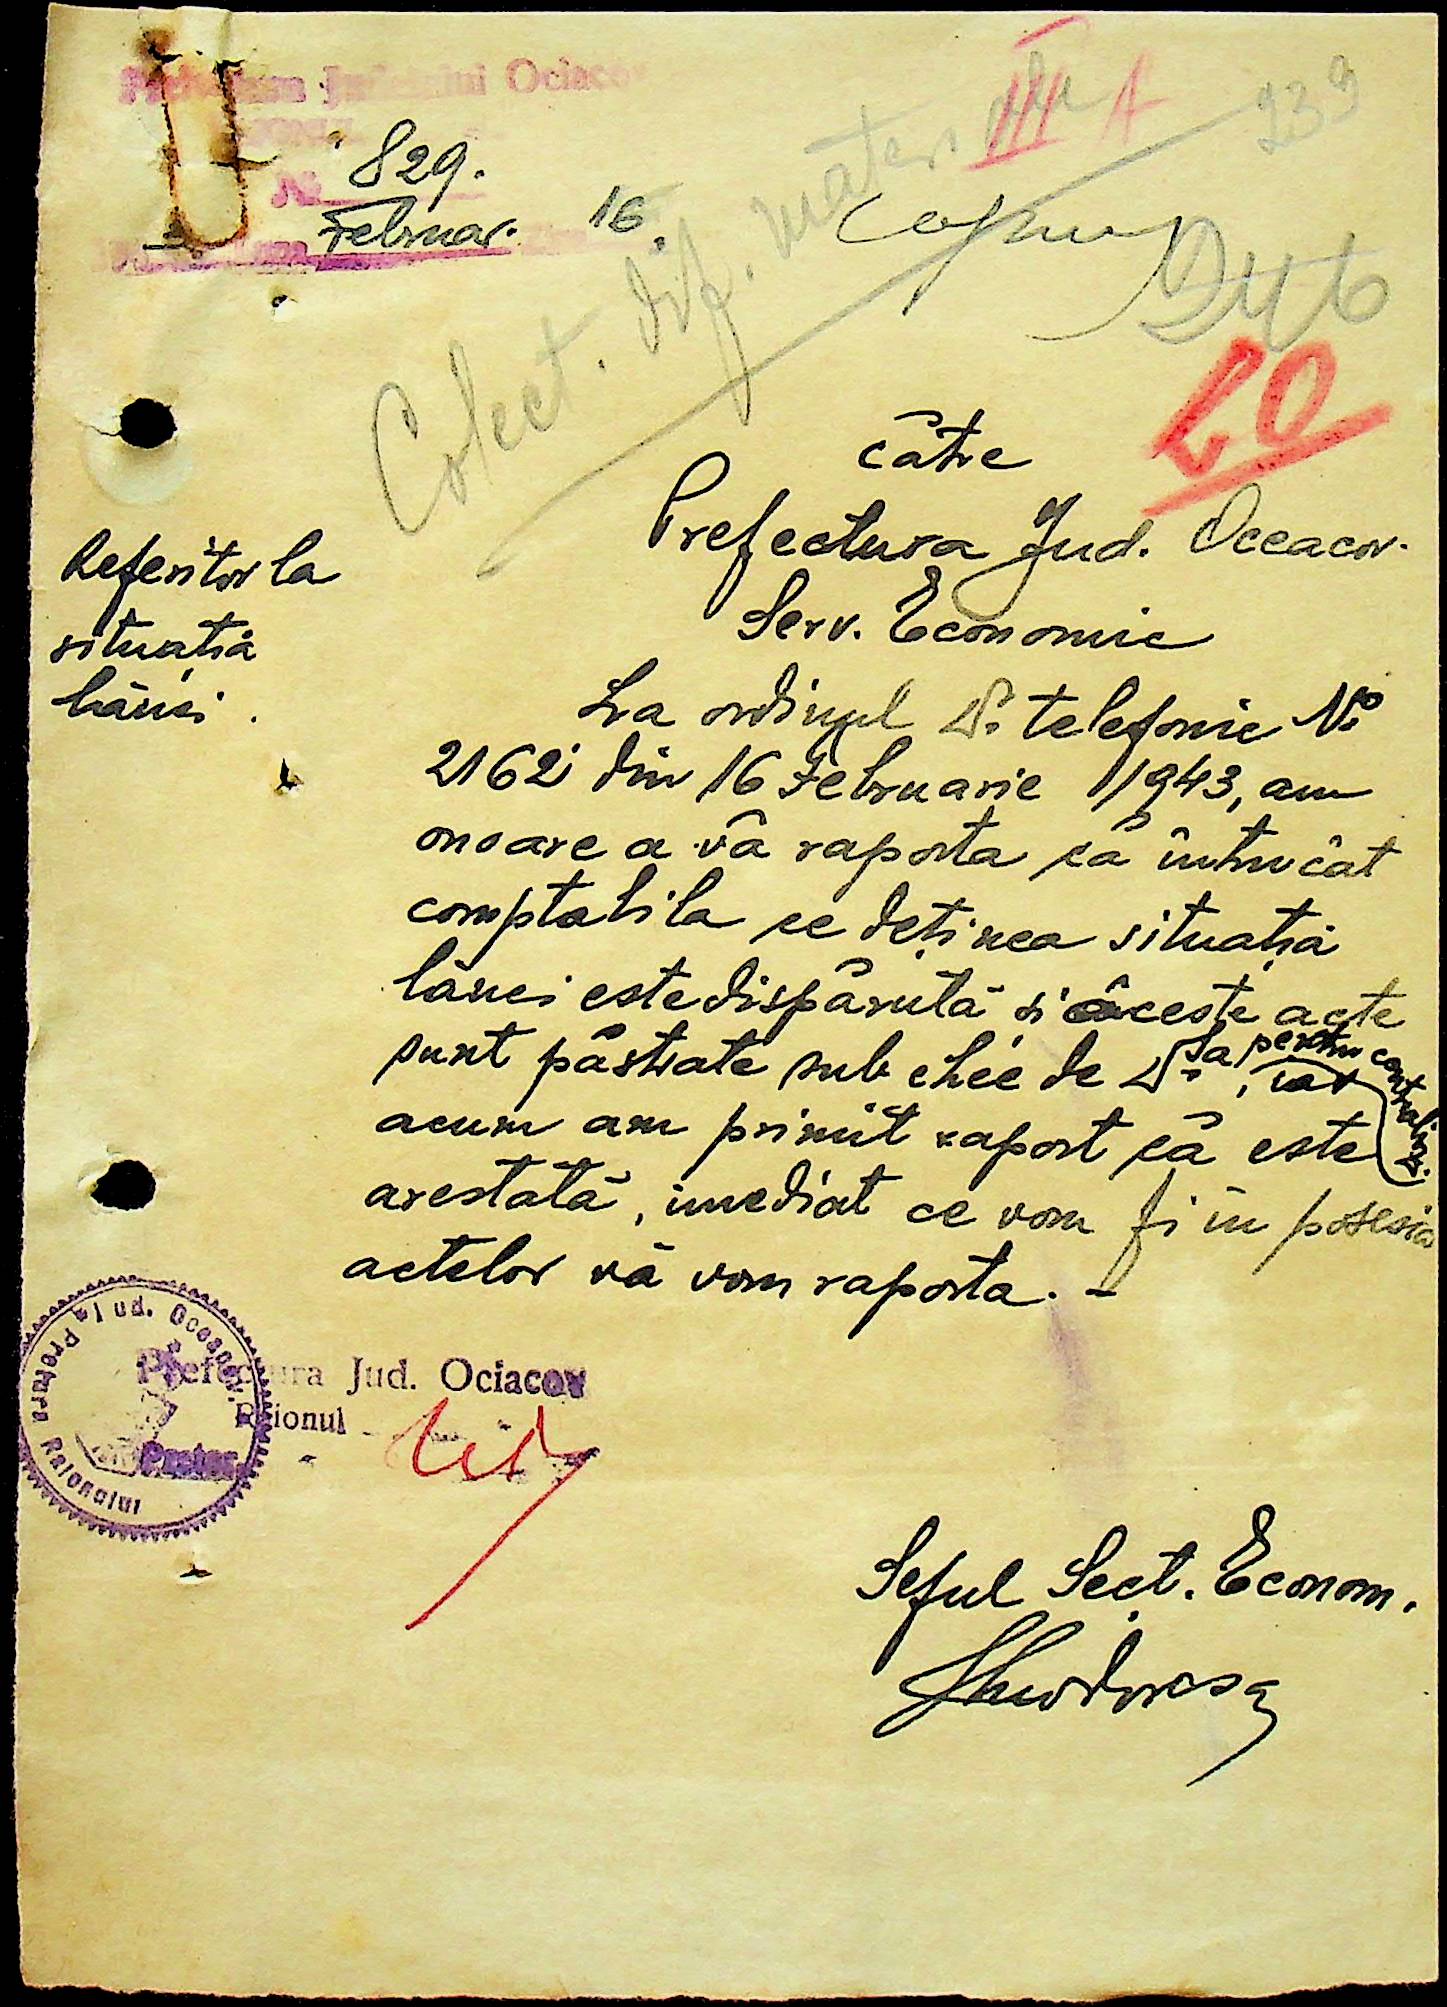 Prefectura Judetului Ociacov
№ 829.
Februar. 16.
III A
239
Colect. dif. mater.
20
către
Prefectura Jud. Oceacov.
Serv. Economic
Referitor la
situația
lânei.
La ordinul D. telefonic №
2162 din 16 Februarie 1943, am
onoare a vă raporta că întrucât
comptabila ce deținea situația
lânei este dispărută și aceste acte
sunt păstrate sub cheie de Dsa pentru centralizi., iar
acum am primit raport că este
arestată, imediat ce vom fi în posesia
actelor vă vom raporta. -
Jud. Oceacov.
Pretura Raionului
Prefectura Jud. Ociacov
Raionul
Pretor
Șeful Sect. Econom.